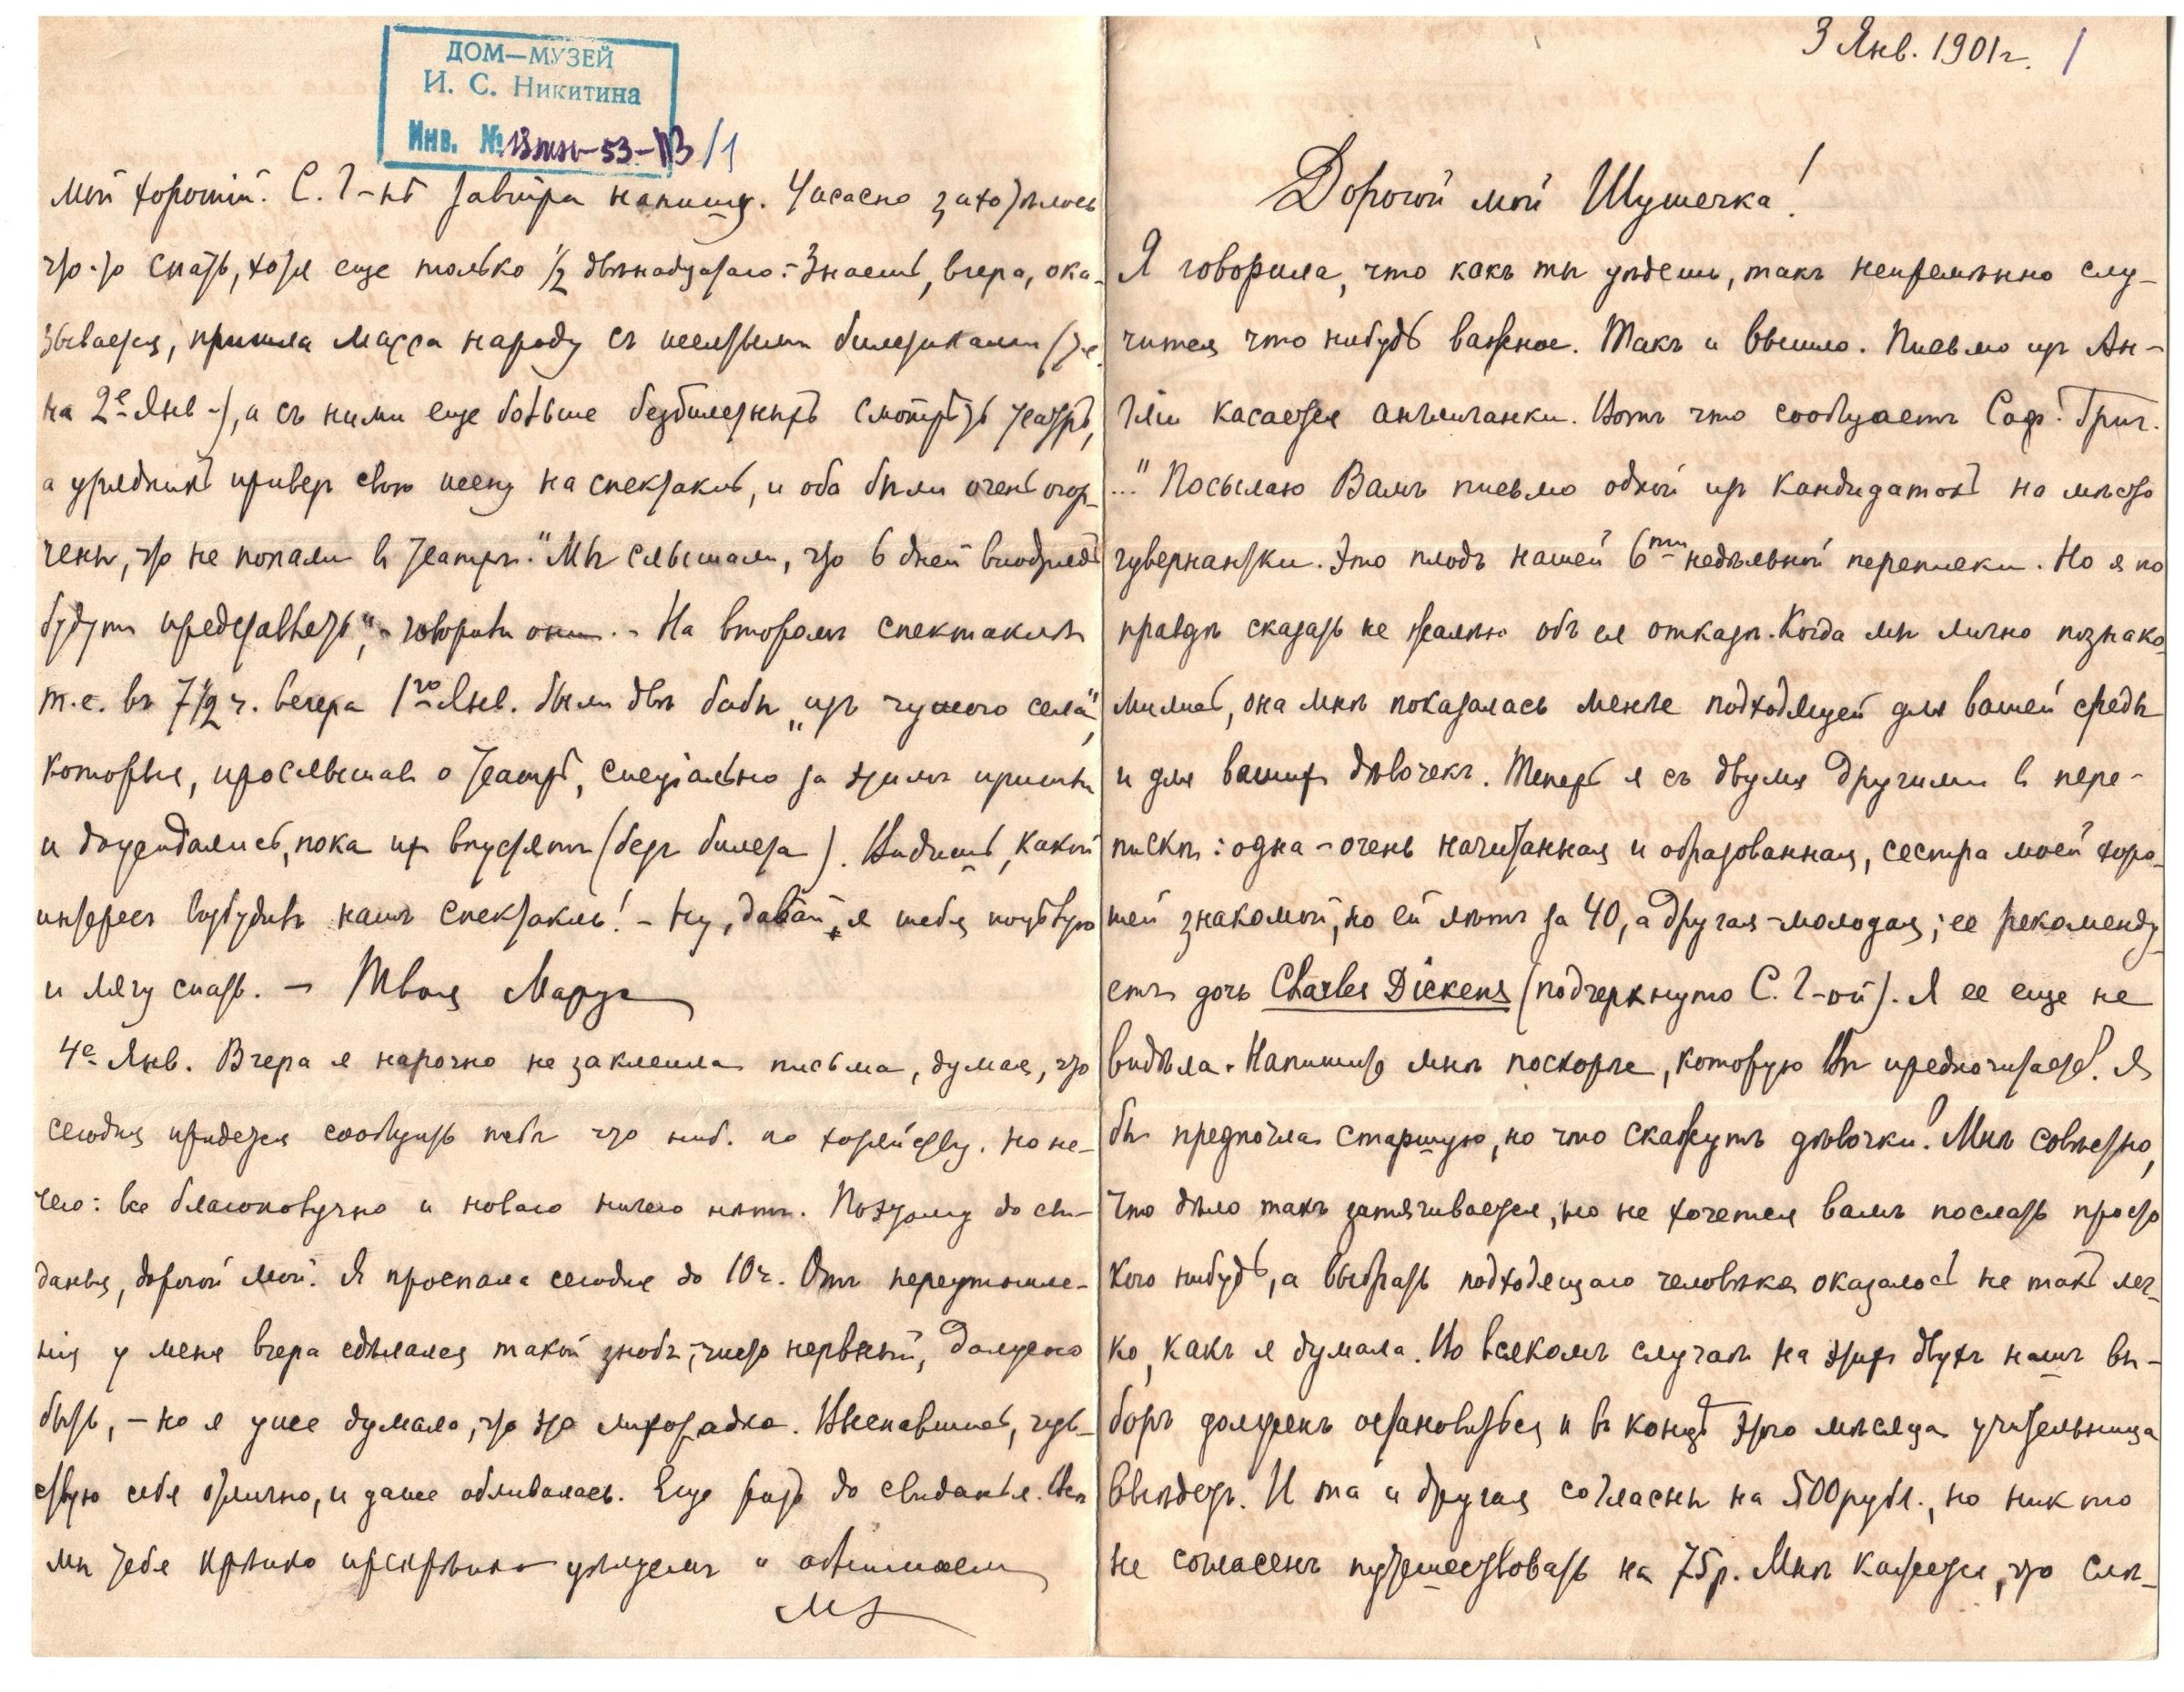 3 Янв. 1901 г. 1
Дорогой мой Шушечка!
Я говорила, что какъ ты уѣдешь, такъ непремѣнно слу-
чится что нибудь важное. Такъ и вышло. Письмо изъ Ан-
гліи касается англичанки. Вотъ что сообщаетъ Соф. Григ.
..." Посылаю Вамъ письмо одной изъ кандидатокъ на мѣсто
гувернантки. Это плодъ нашей 6ти недѣльной переписки. Но я по
правдѣ сказать не жалѣю объ ея отказѣ. Когда мы лично познако-
мились, она мнѣ показалась менѣе подходящей для вашей среды
и для вашихъ дѣвочекъ. Теперь я съ двумя другими в пере-
пискѣ: одна - очень начитанная и образованная, сестра моей хоро-
шей знакомой, но ей лѣтъ за 40, а другая - молодая; ее рекоменду-
етъ дочь Charles Dickens (подчеркнуто С. Г-ой). Я ее еще не
видѣла. Напишите мнѣ поскорѣе, которую Вы предпочитаете? Я
бы предпочла старшую, но что скажутъ дѣвочки? Мнѣ совѣстно,
что дѣло такъ затягивается, но не хочется вамъ послать просто
кого нибудь, а выбрать подходящаго человѣка оказалось не такъ лег-
ко, какъ я думала. Во всякомъ случаѣ на этихъ двухъ нашъ вы-
боръ долженъ остановиться и въ концѣ этого мѣсяца учительница
выѣдетъ. И та и другая согласны на 500 рубл., но никто
не согласенъ путешествовать на 75 р. Мнѣ кажется, что слѣ-
ДОМ—МУЗЕЙ
И. С. Никитина
Инв. № /1
мой хорошій. С. Г-нѣ завтра напишу. Ужасно захотѣлось
что-то спать, хотя еще только ½ двѣнадцатаго. - Знаешь, вчера, ока-
зывается, пришла масса народу съ желтыми билетиками (т. е.
на 2е Янв -), а съ ними еще больше безбилетныхъ смотрѣть театръ,
а урядникъ привез свою жену на спектакль, и оба были очень огор-
чены, что не попали в театръ. "Мы слышали, что 6 дней вподрядъ
будутъ представлять", - говорили они. - На второмъ спектаклѣ
т.е. въ 7½ ч. вечера 1го Янв. были двѣ бабы „изъ чужого села",
которыя, прослышав о театрѣ, спеціально за этимъ пришли
и дожидались, пока их впустятъ (безъ билета). Видишь, какой
интересъ возбудилъ нашъ спектакль! - Ну, давай, я тебя поцѣлую
и лягу спать. - Твоя Маруся
4е Янв. Вчера я нарочно не заклеила письма, думая, что
сегодня придется сообщить тебѣ что ниб. по хозяйству. Но не-
чего: все благополучно и новаго ничего нѣтъ. Поэтому до сви-
данья, дорогой мой. Я проспала сегодня до 10 ч. Отъ переутомле-
нія у меня вчера сдѣлался такой ознобъ, чисто нервный, должно
быть, - но я уже думала, что это лихорадка. Выспавшись, чув-
ствую себя отлично, и даже обливалась. Еще разъ до свиданья. Всѣ
мы тебя крѣпко прекрѣпко цѣлуемъ и обнимаем